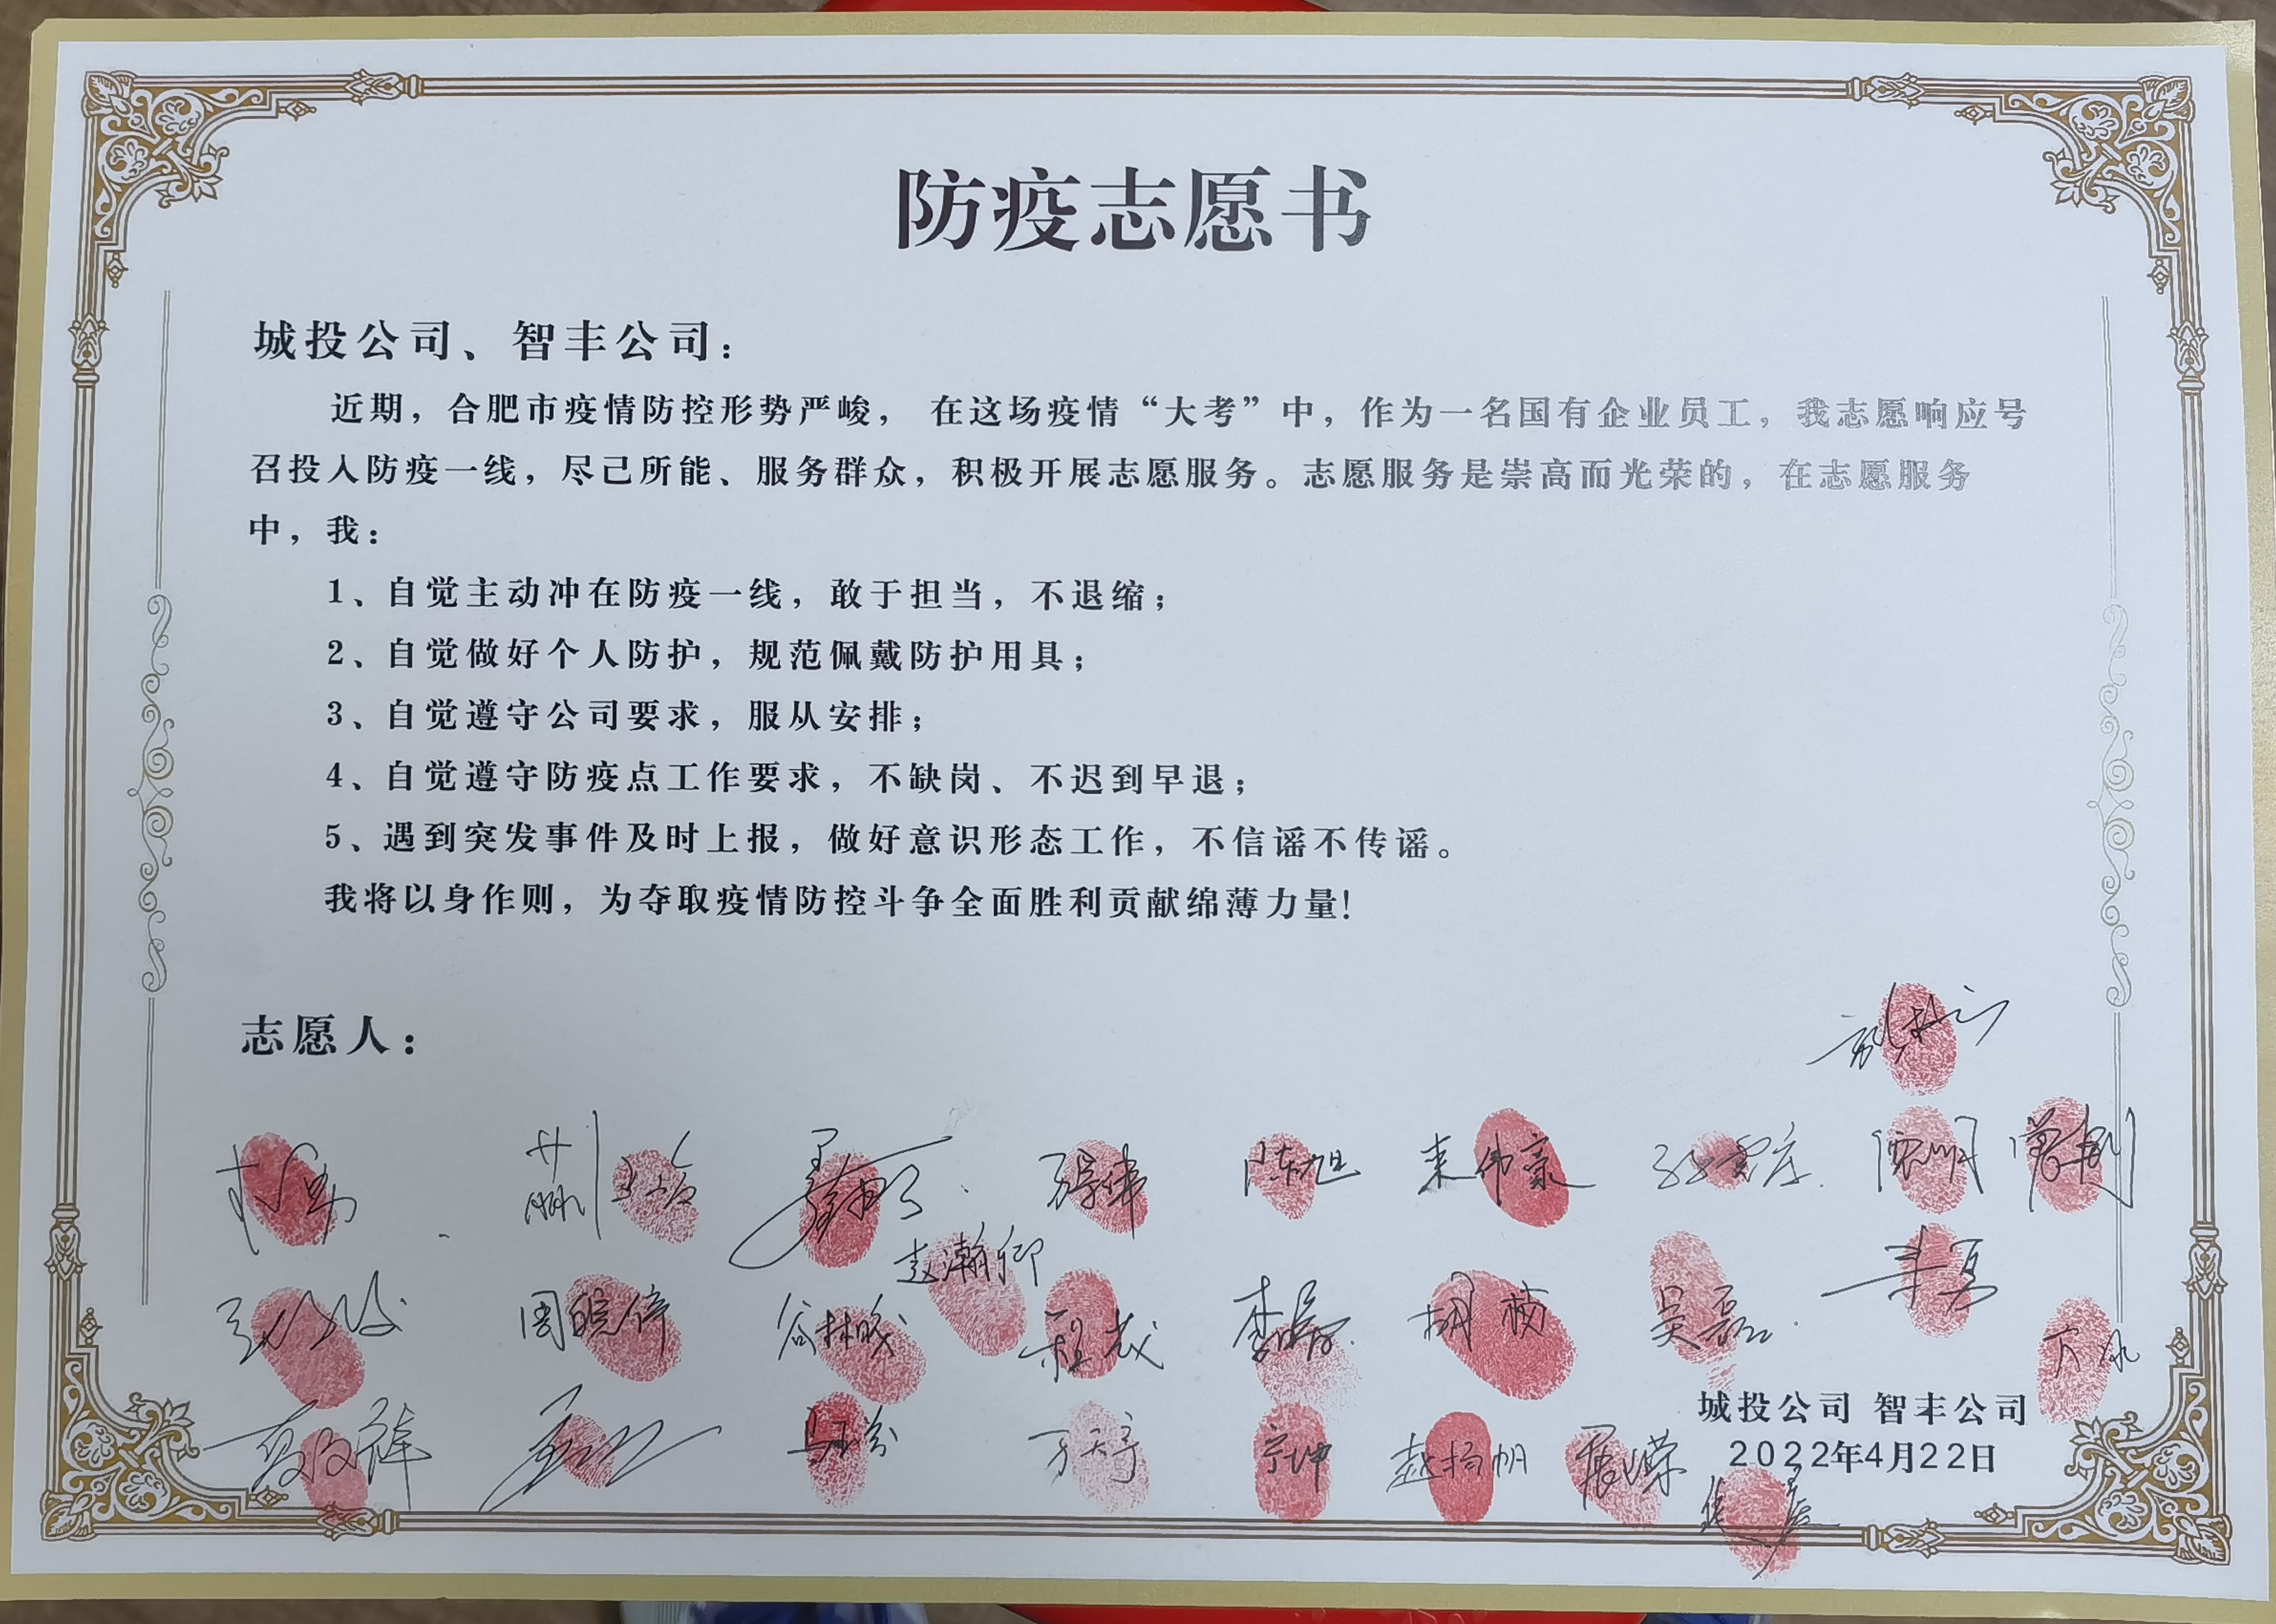 防疫志愿书
城投公司、智丰公司：
近期，合肥市疫情防控形势严峻， 在这场疫情“大考”中，作为一名国有企业员工，我志愿响应号
召投入防疫一线，尽己所能、服务群众，积极开展志愿服务。志愿服务是崇高而光荣的，在志愿服务
中，我：
1、自觉主动冲在防疫一线，敢于担当，不退缩；
2、自觉做好个人防护，规范佩戴防护用具；
3、自觉遵守公司要求，服从安排；
4、自觉遵守防疫点工作要求，不缺岗、不迟到早退；
5、遇到突发事件及时上报，做好意识形态工作，不信谣不传谣。
我将以身作则，为夺取疫情防控斗争全面胜利贡献绵薄力量！
志愿人：
陈旭
赵瀚卿
周皖倚
胡楠
吴磊
宁坤
赵扬帆
城投公司 智丰公司
2022年4月22日